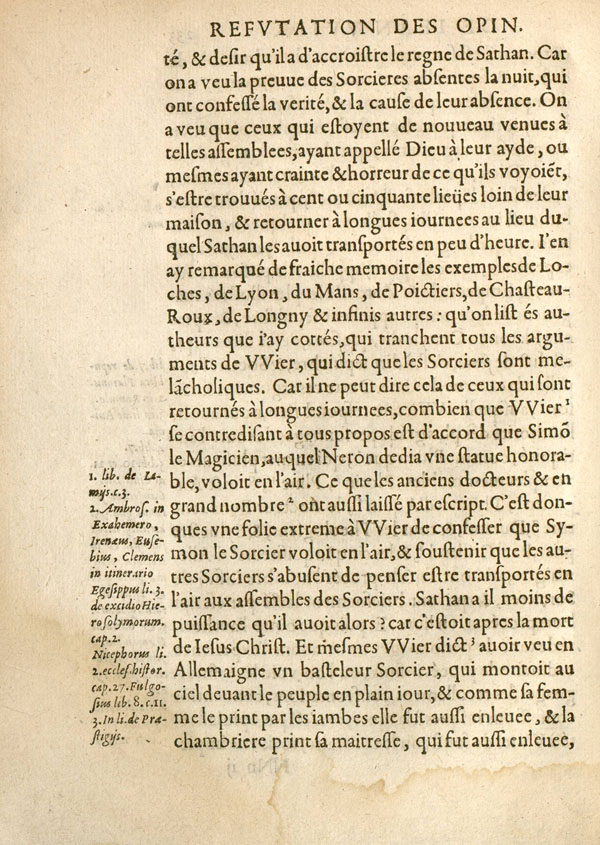 REFVTATION DES OPIN.
té, & desir qu'il a d'accroistre le regne de Sathan. Car
on a veu la preuue des Sorcieres absentes la nuit, qui
ont confessé la verité, & la cause de leur absence. On
a veu que ceux qui estoyent de nouueau venues à
telles assemblees, ayant appellé Dieu à leur ayde, ou
mesmes ayant crainte & horreur de ce qu'ils voyoiẽt,
s'estre trouués à cent ou cinquante lieües loin de leur
maison, & retourner à longues iournees au lieu du-
quel Sathan les auoit transportés en peu d'heure. I'en
ay remarqué de fraiche memoire les exemples de Lo-
ches, de Lyon, du Mans, de Poictiers, de Chasteau-
Roux, de Longny & infinis autres: qu'on list és au-
theurs que i'ay cottés, qui tranchent tous les argu-
ments de VVier, qui dict que les Sorciers sont me-
lãcholiques. Car il ne peut dire cela de ceux qui sont
retournés à longues iournees, combien que VVier ¹
se contredisant à tous propos est d'accord que Simõ
le Magicien, auquel Neron dedia vne statue honora-
ble, voloit en l'air. Ce que les anciens docteurs & en
grand nombre ² ont aussi laissé par escript. C'est don-
ques vne folie extreme à VVier de confesser que Sy-
mon le Sorcier voloit en l'air, & soustenir que les au-
tres Sorciers s'abusent de penser estre transportés en
l'air aux assembles des Sorciers. Sathan a il moins de
puissance qu'il auoit alors? car c'estoit apres la mort
de Iesus-Christ. Et mesmes VVier dict ³ auoir veu en
Allemaigne vn basteleur Sorcier, qui montoit au
ciel deuant le peuple en plain iour, & comme sa fem-
me le print par les iambes elle fut aussi enleuee, & la
chambriere print sa maitresse, qui fut aussi enleuee,
1. lib. de La-
mijs. c. 3.
2. Ambros. in
Exahemero,
Irenæus, Euse-
bius, Clemens
in itinerario
Egesippus li. 3.
de excidio Hie-
rosolymorum.
cap. 2.
Nicephorus li.
2. eccles. histor.
cap. 27. Fulgo-
sius lib. 8. c. 11.
3. In li. de Præ-
stigijs.